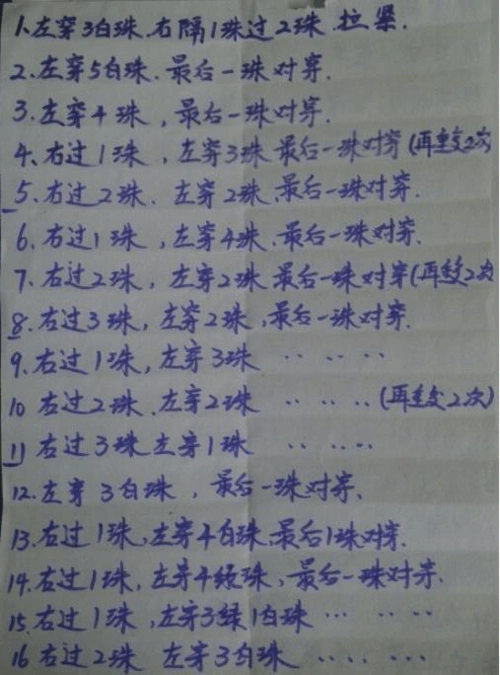 1、左穿3白珠、右隔1珠过2珠、拉紧.
2、左穿5白珠、最后一珠对穿.
3、左穿4珠，最后一珠对穿.
4、右过1珠，左穿3珠 最后一珠对穿(再重复2次
5、右过2珠、左穿2珠、最后一珠对穿.
6、右过1珠，左穿4珠、最后一珠对穿.
7、右过2珠，左穿2珠 最后一珠对穿(再重复2次
8、右过3珠，左穿2珠，最后一珠对穿.
9、右过1珠，左穿3珠 ‥‥‥‥
10 右过2珠、左穿2珠 ‥‥‥‥(再重复2次)
11 右过3珠 左穿1珠 ‥‥‥‥
12、左穿 3白珠，最后一珠对穿、
13、右过1珠，左穿4白珠、最后1珠对穿.
14、右过1珠，左穿4绿珠，最后一珠对穿.
15、右过1珠，左穿3绿1白珠 ‥‥‥‥
16 右过2珠 左穿3白珠 ‥‥‥‥